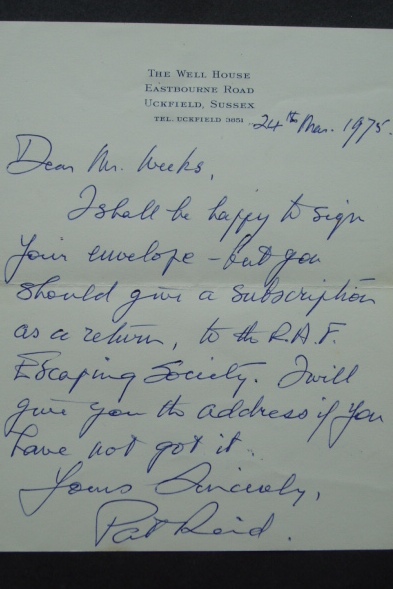 THE WELL HOUSE
EASTBOURNE ROAD
UCKFIELD, SUSSEX
TEL. UCKFIELD 3651
24th Mar. 1975.
Dear Mr. Weeks,
I shall be happy to sign
your envelope – but you
should give a subscription
as a return, to the R.A.F.
Escaping Society. I will
give you the address if you
have not got it.
Yours Sincerely,
Pat Reid.